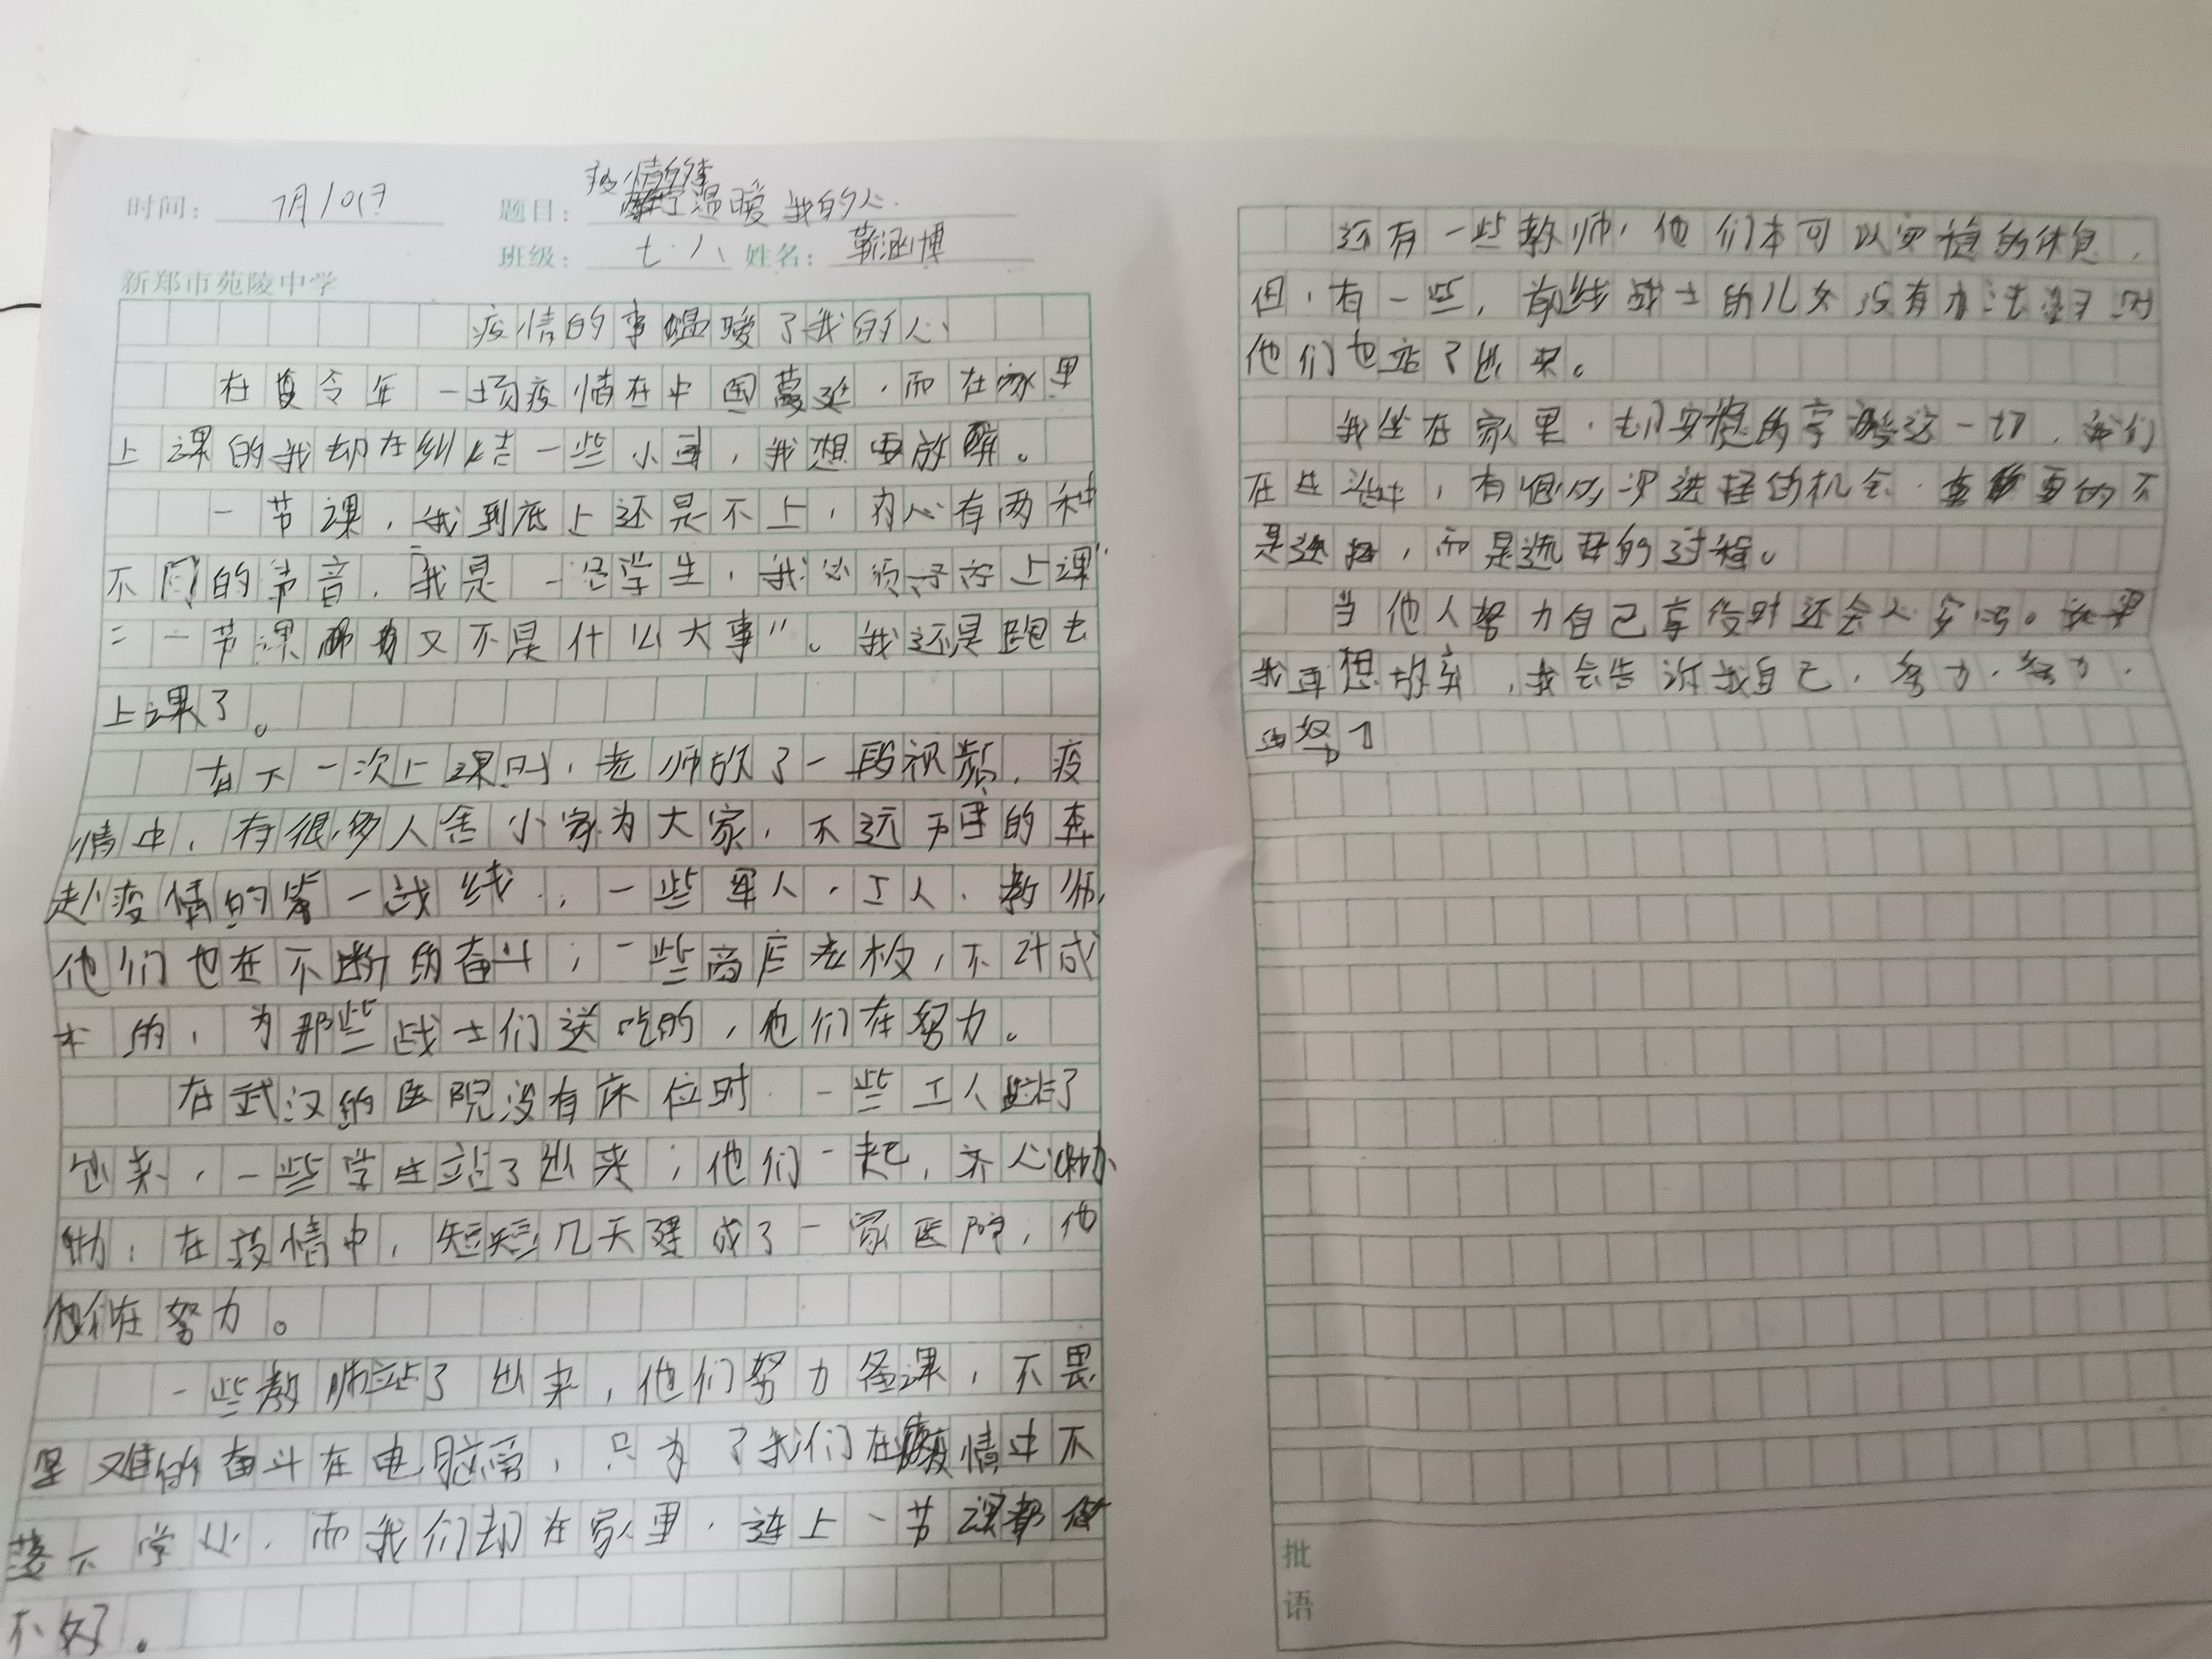 时间： 7月10日
题目： 疫情的事温暖我的心
班级： 七·八 姓名： 靳涵博
新郑市苑陵中学
疫情的事温暖了我的心
在今年一场疫情在中国蔓延，而在家里
上课的我却在纠结一些小事，我想要放弃。
一节课，我到底上还是不上，内心有两种
不同的声音，“我是一名学生，我必须去上课”
“一节课而已又不是什么大事”。我还是跑去
上课了。
在下一次上课时，老师放了一段视频，疫
情中，有很多人舍小家为大家，不远千里的奔
赴疫情的第一战线；一些军人，工人、教师，
他们也在不断的奋斗；一些商店老板，不计成
本的，为那些战士们送吃的，他们在努力。
在武汉的医院没有床位时 一些工人站了
出来，一些学生站了出来；他们一起，齐心协
力，在疫情中，短短几天建成了一家医院，他
们在努力。
一些教师站了出来，他们努力备课，不畏
困难的奋斗在电脑旁，只为了我们在疫情中不
落下学业，而我们却在家里，连上一节课都做
不好。
还有一些教师，他们本可以安稳的休息，
但，有一些，前线战士的儿女没有办法
他们也站了出来。
我坐在家里，却安稳的享受这一切，我们
在生活中，有很多次选择的机会，重要的不
是选择，而是选择的过程。
当他人努力自己享受时还会心安吗。如果
我再想放弃，我会告诉我自己，努力，努力，
再努力
批
语